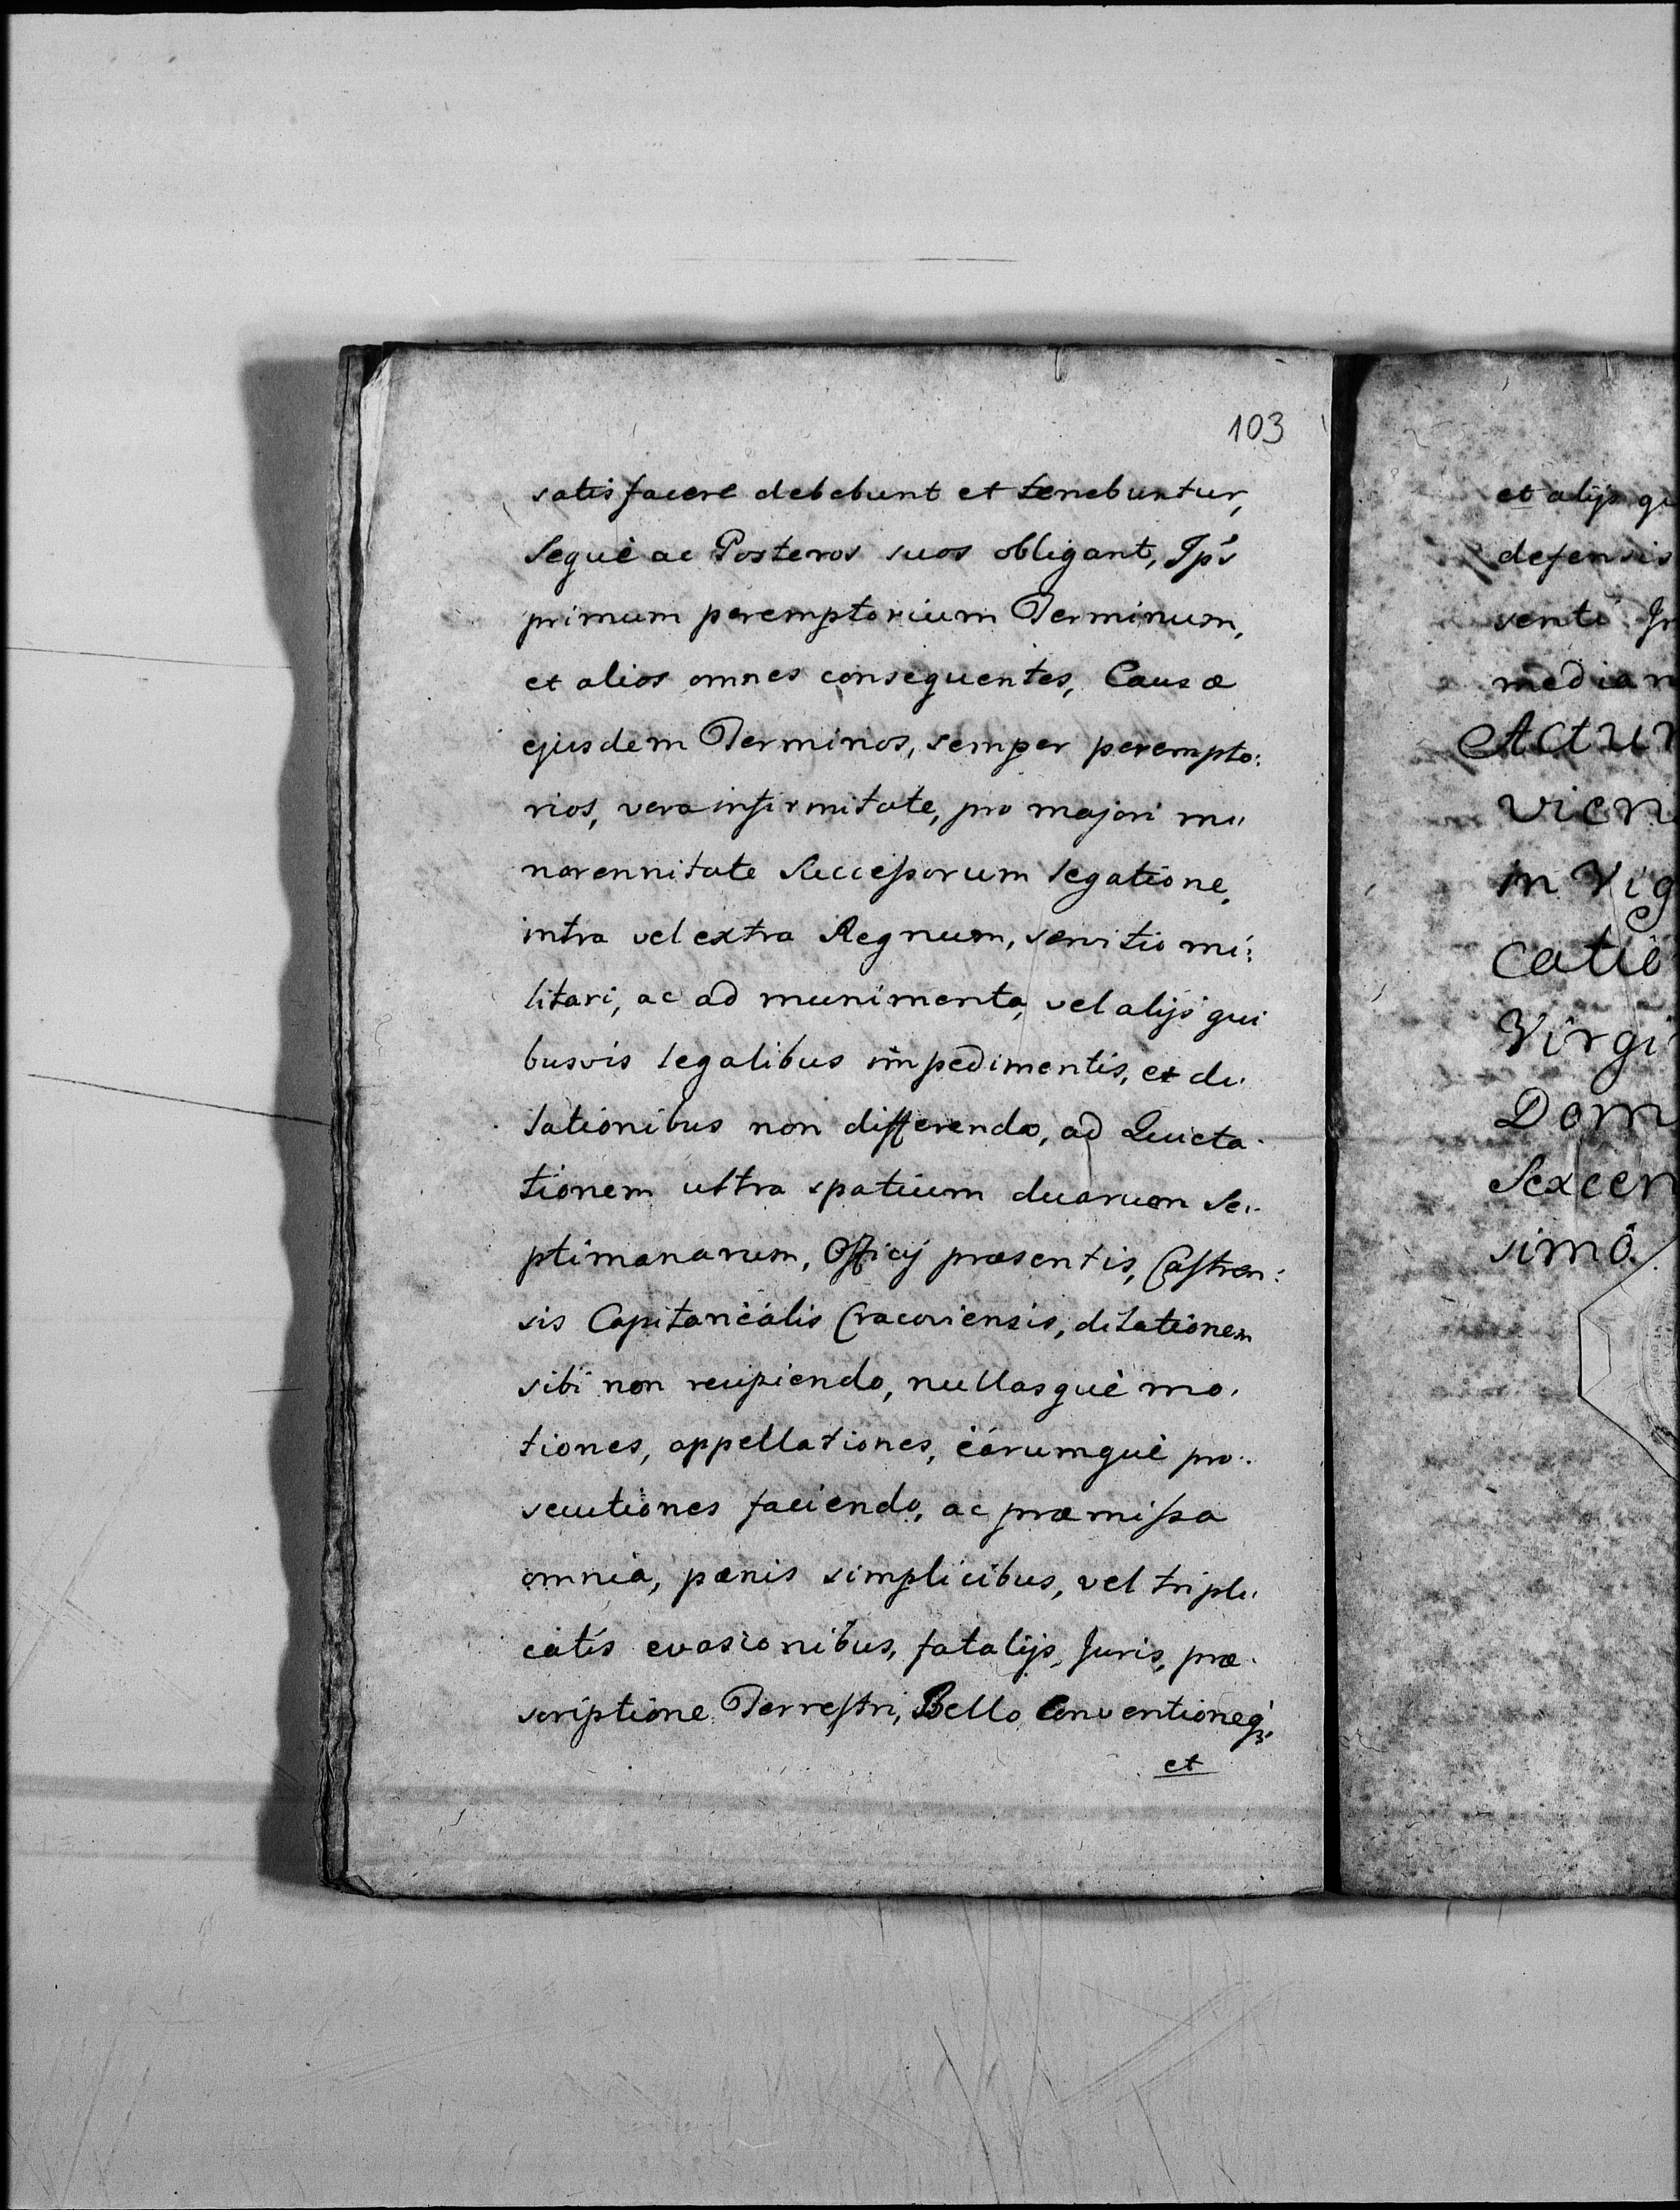 103
satisfacere debebunt et tenebuntur,
Sequè ac Posteros suos obligant, Ip's
primum peremptorium Terminum,
et alios omnes consequentes, Causæ
ejusdem Terminos, semper perempto:
rios, vera infirmitate, pro majori mi,,
norennitate Successorum legatione,
intra vel extra Regnum, servitio mi:
litari, ac ad munimenta, vel alijs qui
busvis legalibus impedimentis, et di.
lationibus non differendo, ad Quieta.
tionem ultra spatium duarum Se..
ptimanarum, Officij præsentis, Castren:
sis Capitanealis Cracoviensis, dilationem
sibi non recipiendo, nullasquè mo.
tiones, appellationes, eárumquè pro..
secutiones faciendo, ac præmissa
omnia, pænis simplicibus, vel tripli.
catis evasionibus, fatalijs, Juris, præ.
scriptione Terrestri, Bello Conventioneq;
et
et alijs qu
defensis
senti
median
Actum
vien
in Vig
catio
Virgi
Dom
Sexcen
simô.